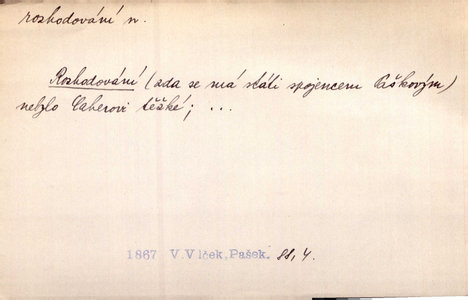 rozhodování n.
Rozhodování (zda se má státi spojencem Paškovým)
nebylo Caherovi těžké; ...
1867 V.Vlček, Pašek. 88, 4.